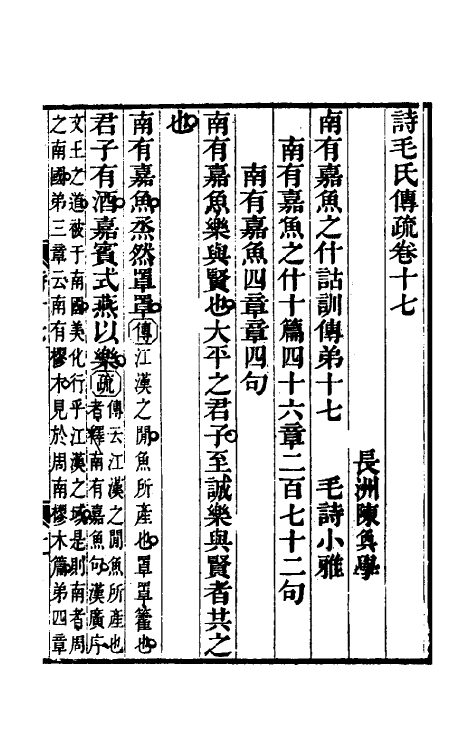 詩毛氏傳疏卷十七
長洲陳奐學
南有嘉魚之什詁訓傳弟十七　毛詩小雅
南有嘉魚之什十篇四十六章二百七十二句
南有嘉魚四章章四句
南有嘉魚樂與賢也大平之君子至誠樂與賢者共之
也
南有嘉魚烝然罩罩傳江漢之閒魚所產也罩罩籗也
君子有酒嘉賓式燕以樂疏傳云江漢之閒魚所產也
者釋南有嘉魚句漢廣序
文王之道被于南國美化行乎江漢之域是則南者周
之南國弟三章云南有樛木見於周南樛木篇弟四章